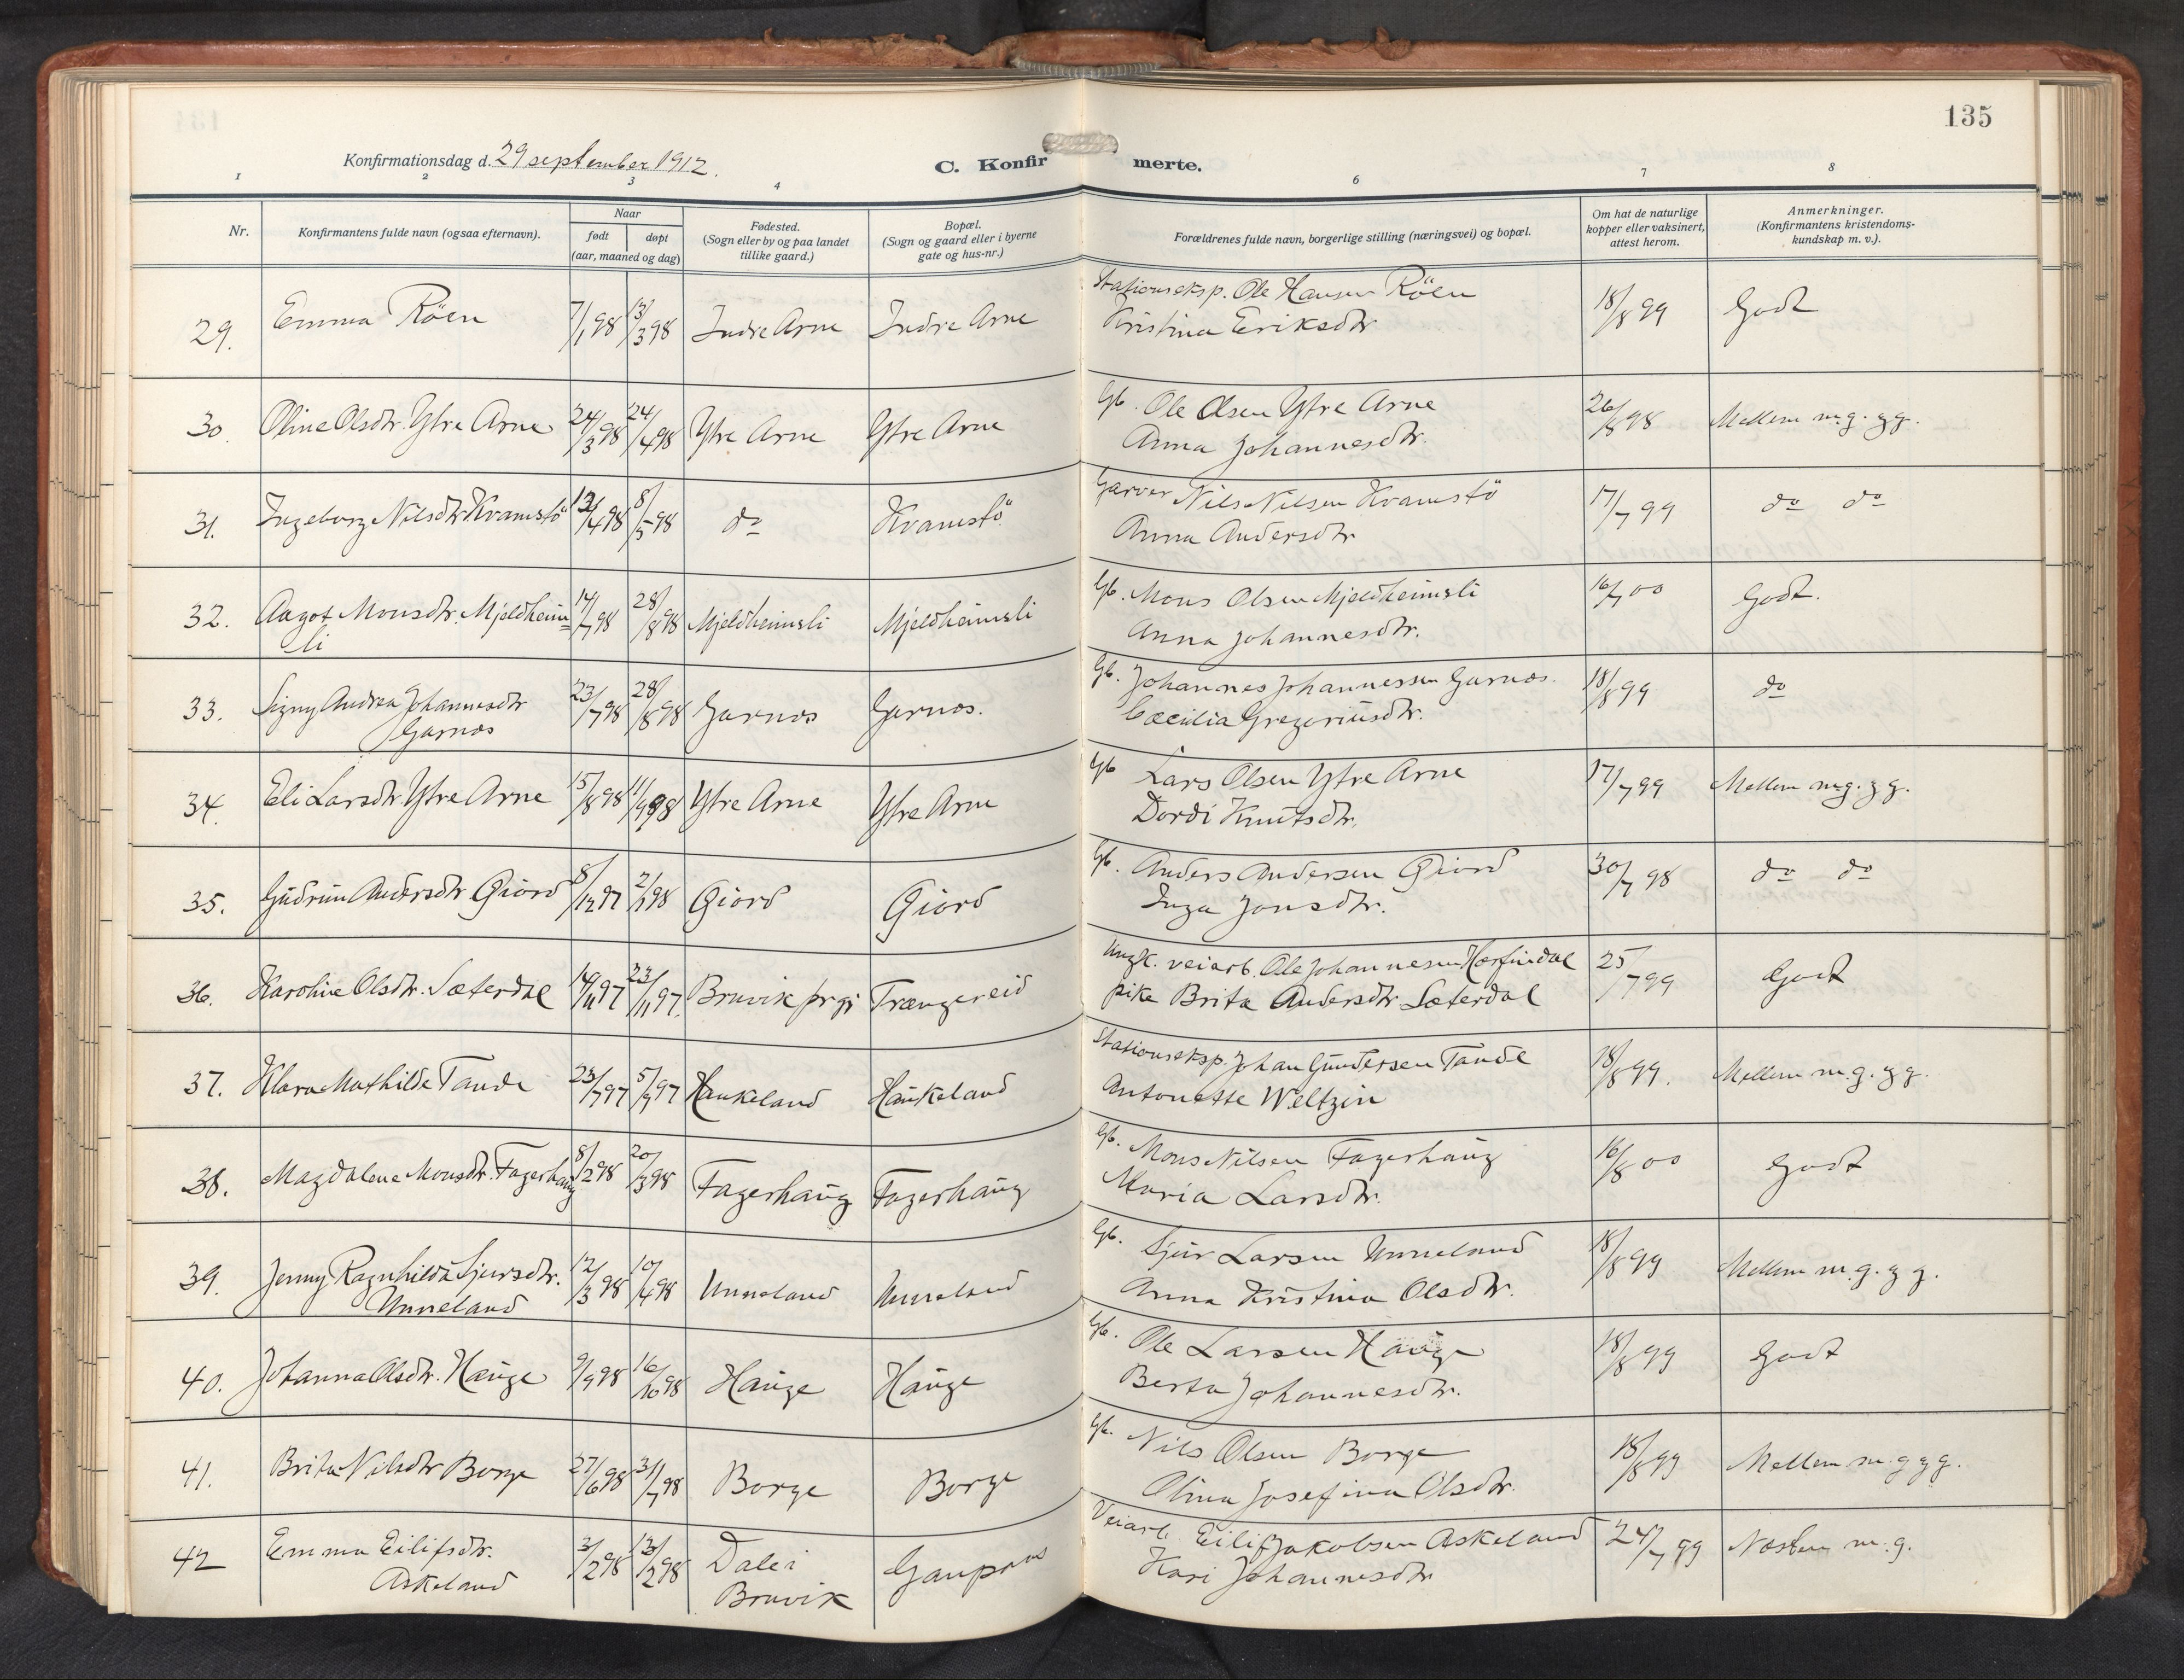 135
Konfirmationsdag d. 29 september 1912.
C. Konfirmerte.
1 2 3 4 6 7 8
Nr.
Konfirmantens fulde navn (ogsaa efternavn).
Naar
født døpt
(aar, maaned og dag)
Fødested.
(Sogn eller by og paa landet
tillike gaard.)
Bopæl.
(Sogn og gaard eller i byerne
gate og hus-nr.)
Forældrenes fulde navn, borgerlige stilling (næringsvei) og bopæl.
Om hat de naturlige
kopper eller vaksinert,
attest herom.
Anmerkninger.
(Konfirmantens kristendoms-
kundskap m. v.).
29. Emma Röen 7/1 98 13/3 98 Indre Arne Indre Arne Stationseksp. Ole Hansen Röen 18/8 99 Godt
Kristina Eriksdtr
30. Oline Olsdtr. Ytre Arne 24/3 98 24/4 98 Ytre Arne Ytre Arne Gb. Ole Olsen Ytre Arne 26/8 98 Mellem m.g. z g.
Anna Johannesdtr.
31. Ingeborg Nilsdtr Kvamstö 4 98 8/5 98 do Kvamstö Garver Nils Nilsen Kvamstö 17/7 99 do do
Anna Andersdtr
32. Aagot Monsdtr. Mjeldheim= 14/7 98 28/8 98 Mjeldheimsli Mjeldheimsli Gb. Mons Olsen Mjeldheimsli 16/7 00 Godt.
li Anna Johannesdtr.
33. Signy Andrea Johannesdtr 23/7 98 28/8 98 Garnos Garnos. Gb. Johannes Johannessen Garnos. 18/8 99 do
Garnos Cæcilia Gregoriusdtr.
34. Eli Larsdtr. Ytre Arne 15/8 98 11/9 98 Ytre Arne Ytre Arne Gb Lars Olsen Ytre Arne 17/7 99 Mellem m.g. z g.
Dordi Knutsdtr.
35. Gudrun Andersdtr Giord 8/12 97 2/1 98 Giord Giord Gb. Anders Andersen Giord 30/7 98 do do
Inga Jonsdtr.
36. Karoline Olsdtr. Sæterdal 14/11 97 23/11 97. Bruvik prgj Trængereid Ungk. veiarb. Ole Johannesen Herfindal 25/7 99 Godt
pike Brita Andersdtr Sæterdal
37. Klara Mathilde Tande 23/7 97 5/9 97 Haukeland Haukeland Stationseksp. Johan Gundersen Tande 18/8 99. Mellem m.g. z g.
Antonette Weltzin
38. Magdalene Monsdtr. Fagerhaug 8/2 98 20/3 98 Fagerhaug Fagerhaug Gb. Mons Nilsen Fagerhaug 16/8 00 Godt
Maria Larsdtr.
39. Jenny Ragnhilda Sjursdtr. 12/3 98 10/4 98 Unneland Unneland Gb. Sjur Larsen Unneland 18/8 99 Mellem m.g. z g.
Unneland Anna Kristina Olsdtr.
40. Johanna Olsdtr. Hauge 9/9 98 16/10 98 Hauge Hauge Gb. Ole Larsen Hauge 18/8 99 Godt
Berta Johannesdtr.
41. Brita Nilsdtr Borge 27/6 98 31/7 98 Borge Borge Gb. Nils Olsen Borge 18/8 99 Mellem m.g z g.
Olina Josefina Olsdtr.
42 Emma Eilifsdtr. 3/2 98 13/2 98 Dale i Gaupaas Veiarb. Eilif Jakobsen Askeland 24/7 99 Næsten m.g.
Askeland Bruvik Kari Johannesdtr